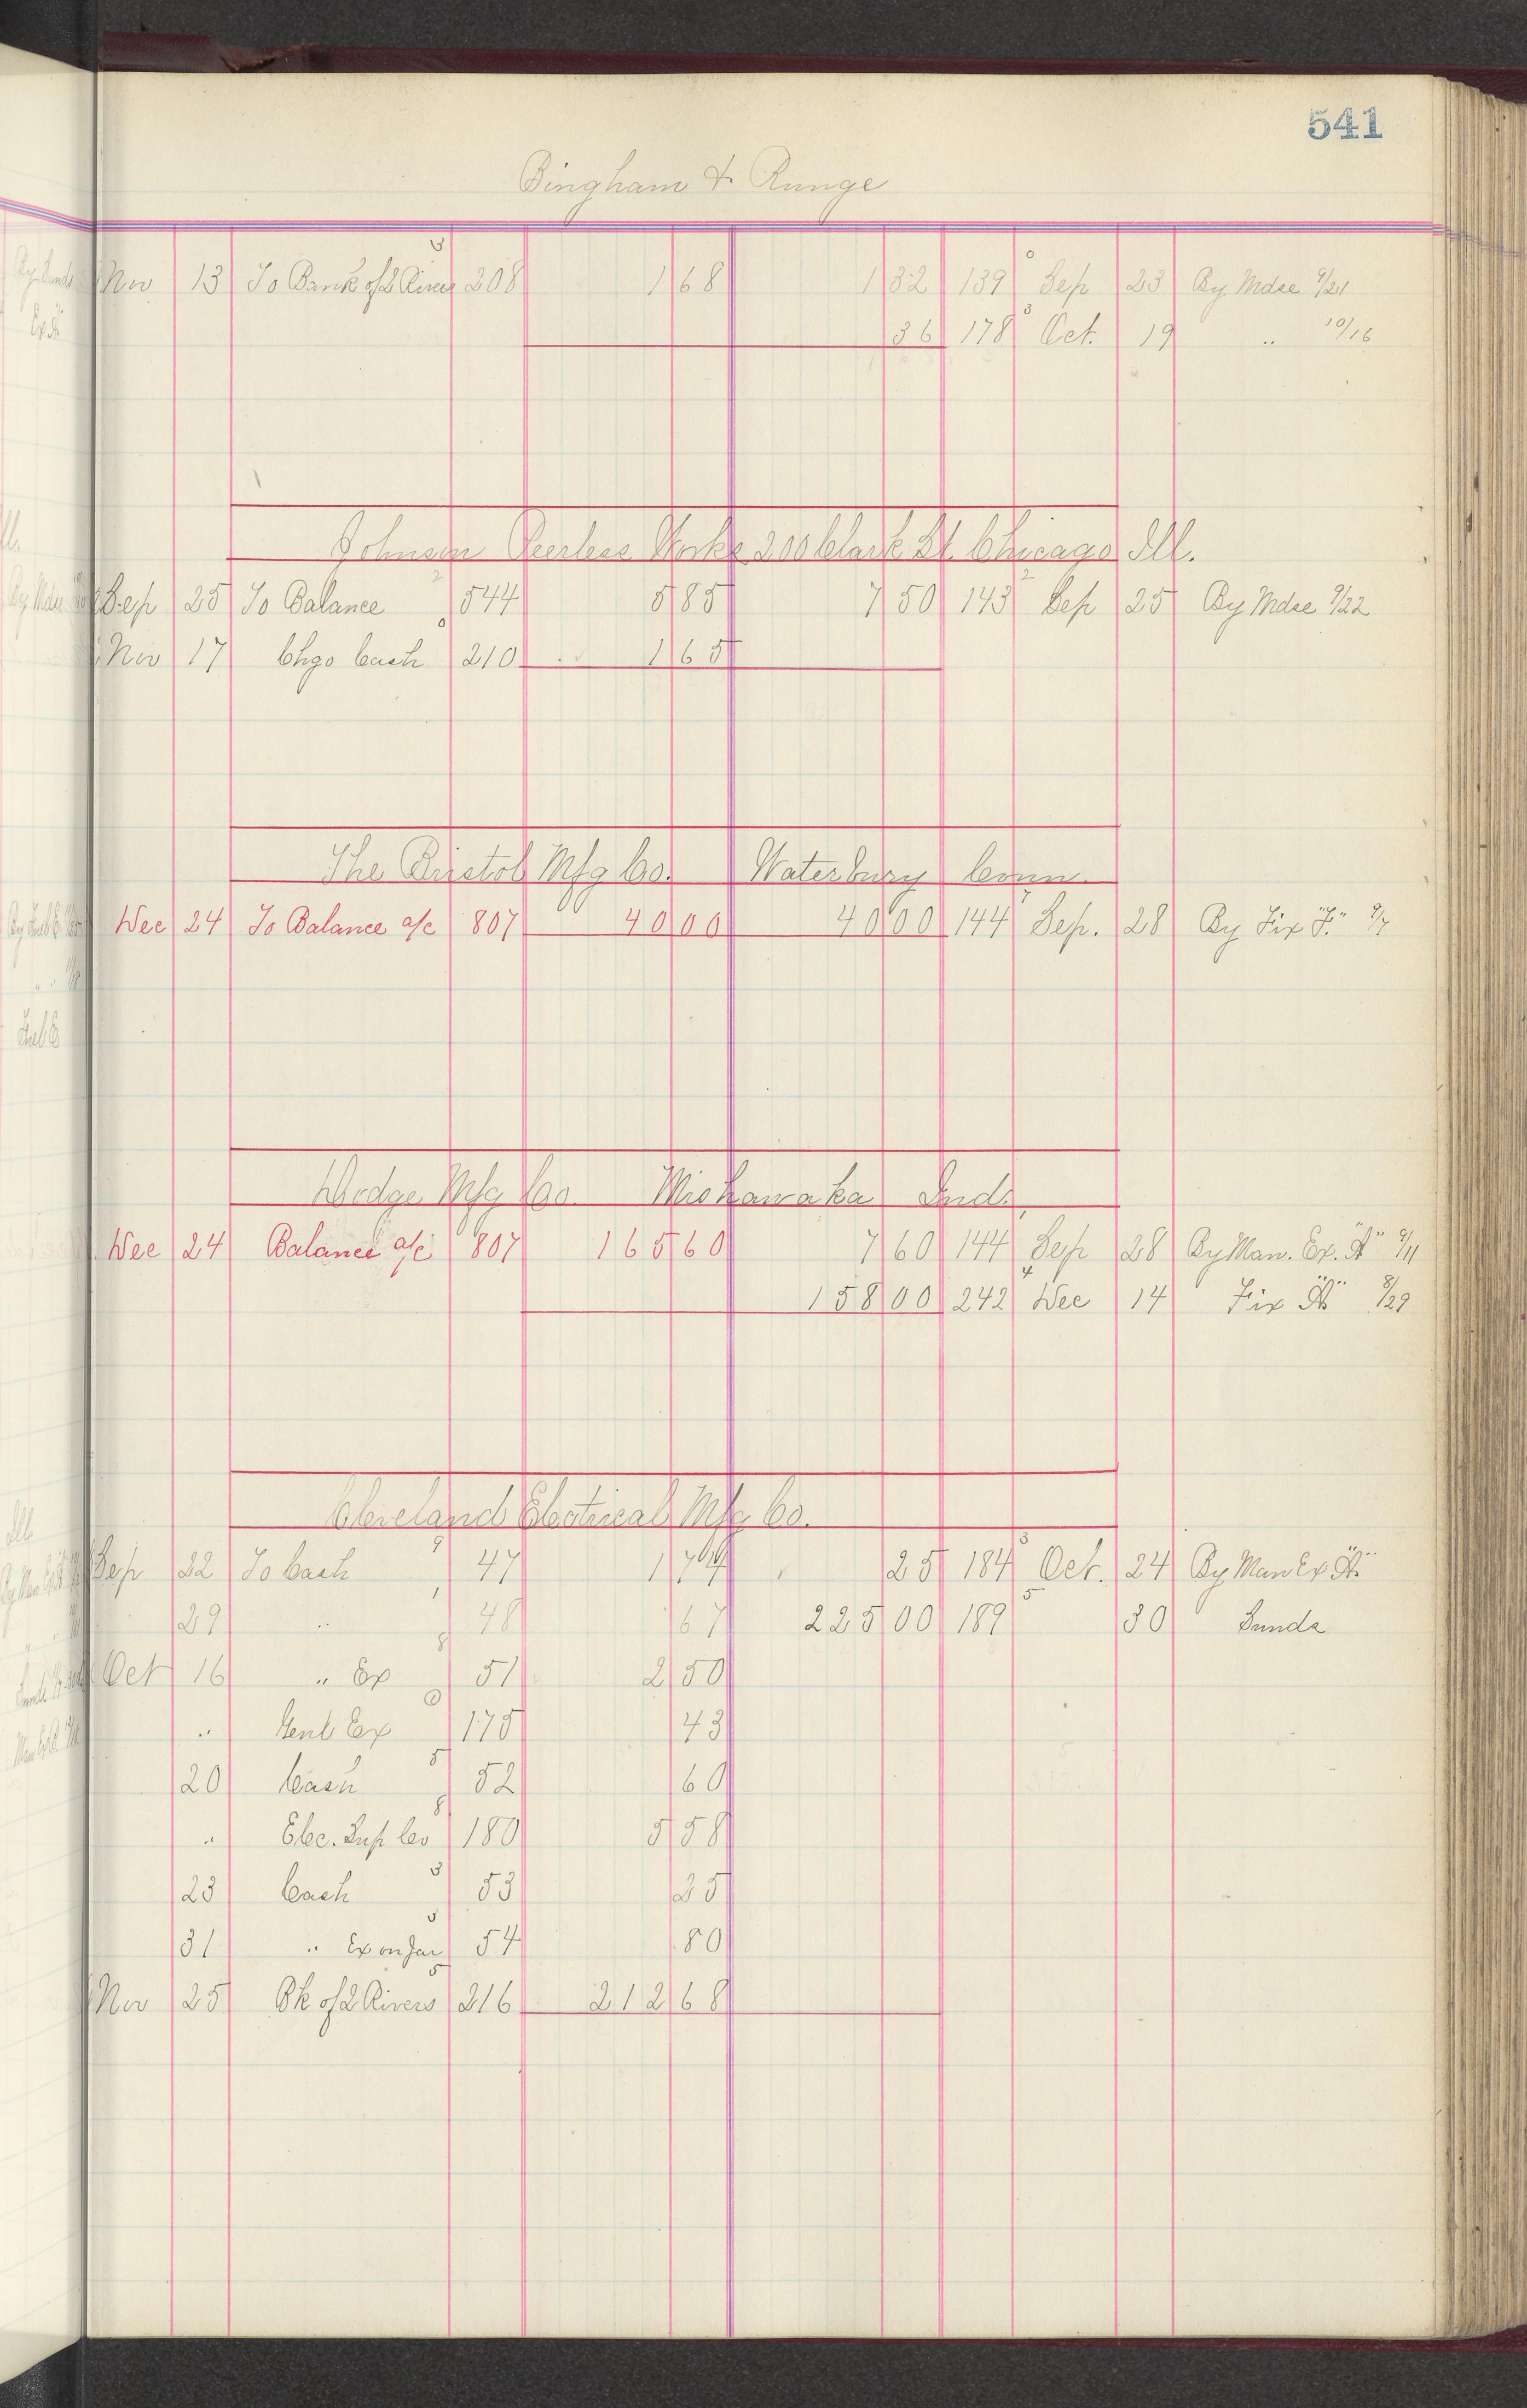 541
Bingham & Runge
Nov 13 To Bank of 2 Rivers 208 1 68 1 32 139 Sep 23 By Mdse 9/21
36 178 Oct. 19 " 10/16
Johnson Peerless Works 200 Clark St. Chicago Ill.
Sep 25 To Balance 544 5 85 7 50 143 Sep 25 By Mdse 9/22
Nov 17 Chgo Cash 210 1 65
The Bristol Mfg Co. Waterbury Conn.
Dec 24 To Balance a/c 807 40 00 40 00 144 Sep. 28 By Fix "F." 9/7
Dodge Mfg Co. Mishawaka Ind.
Dec 24 Balance a/c 807 165 60 7 60 144 Sep 28 By Man. Ex. "A" 9/11
158 00 242 Dec 14 Fix "A" 8/29
Cleveland Electrical Mfg Co.
Sep 22 To Cash 47 1 74 25 184 Oct. 24 By Man Ex "A"
29 " 48 67 225 00 189 30 Sunds
Oct 16 " Ex 51 2 50
" Genl Ex 175 43
20 Cash 52 60
" Elec. Sup Co 180 5 58
23 Cash 53 25
31 " Ex on Jar 54 80
Nov 25 Bk of 2 Rivers 216 212 68